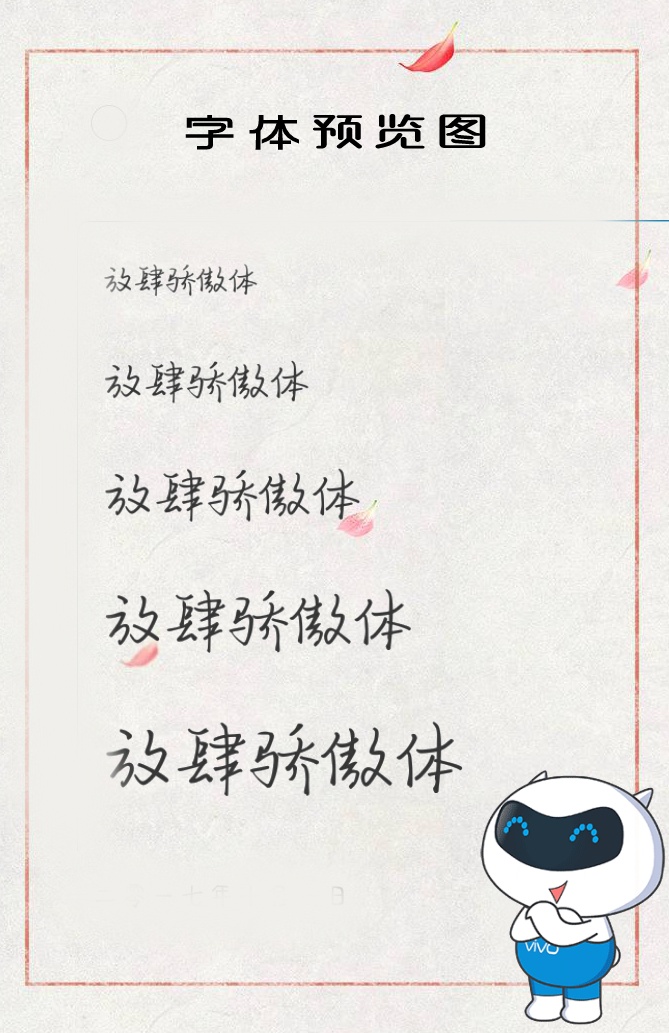 字体预览图
放肆骄傲体
放肆骄傲体
放肆骄傲体
放肆骄傲体
放肆骄傲体
vivo